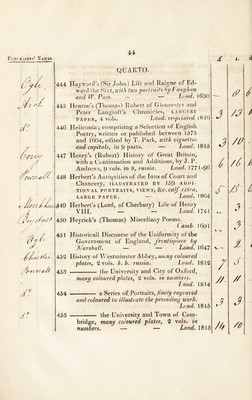 44
PURCHASERS' NAMES.
£ s.
QUARTO.
444 Hayward's (Sir John) Life and Raigne of Edward the Sixt, with two portraits by Vaughan
and W. Pass. — — Lond. 1630
445 Hearne's (Thomas) Robert of Gloucester and
Peter Langtoft's Chronicles, LARGEST
PAPER, 4 vols. Lond. reprinted 1810
3 13 6
446 Heliconia; comprising a Selection of English
Poetry, written or published between 1575
and 1604, edited by T. Park, with vignettes
and capitals, in 9 parts. — Lond. 1815
3 10
447 Henry's (Robert) History of Great Britain,
with a Continuation and Additions, by J. P.
Andrews, 9 vols. in 8, russia. Lond. 1771-96
6 16 6
448 Herbert's Antiquities of the Inns of Court and
Chancery, ILLUSTRATED BY 159 ADDITIONAL PORTRAITS, VIEWS, &c. calf extra,
LARGE PAPER. — — Lond. 1804
15 6
449 Herbert's (Lord, of Cherbury) Life of Henry
VIII. — — — Lond. 1741
450 Heyrick's (Thomas) Miscellany Poems.
Camb. 1691
451 Historicall Discourse of the Uniformity of the
Government of England, frontispiece by
Marshall. — — Lond. 1647
452 History of Westminster Abbey, many coloured
plates, 2 vols. h. b. russia. Lond. 1812
453 — the University and City of Oxford,
many coloured plates, 2 vols. in numbers.
Lond. 1814
454 — a Series of Portraits, finely engraved
and coloured to illustrate the preceding work.
Lond. 1815
455 — the University and Town of Cambridge, many coloured plates, 2 vols. in
numbers. — — Lond. 1815
14 10